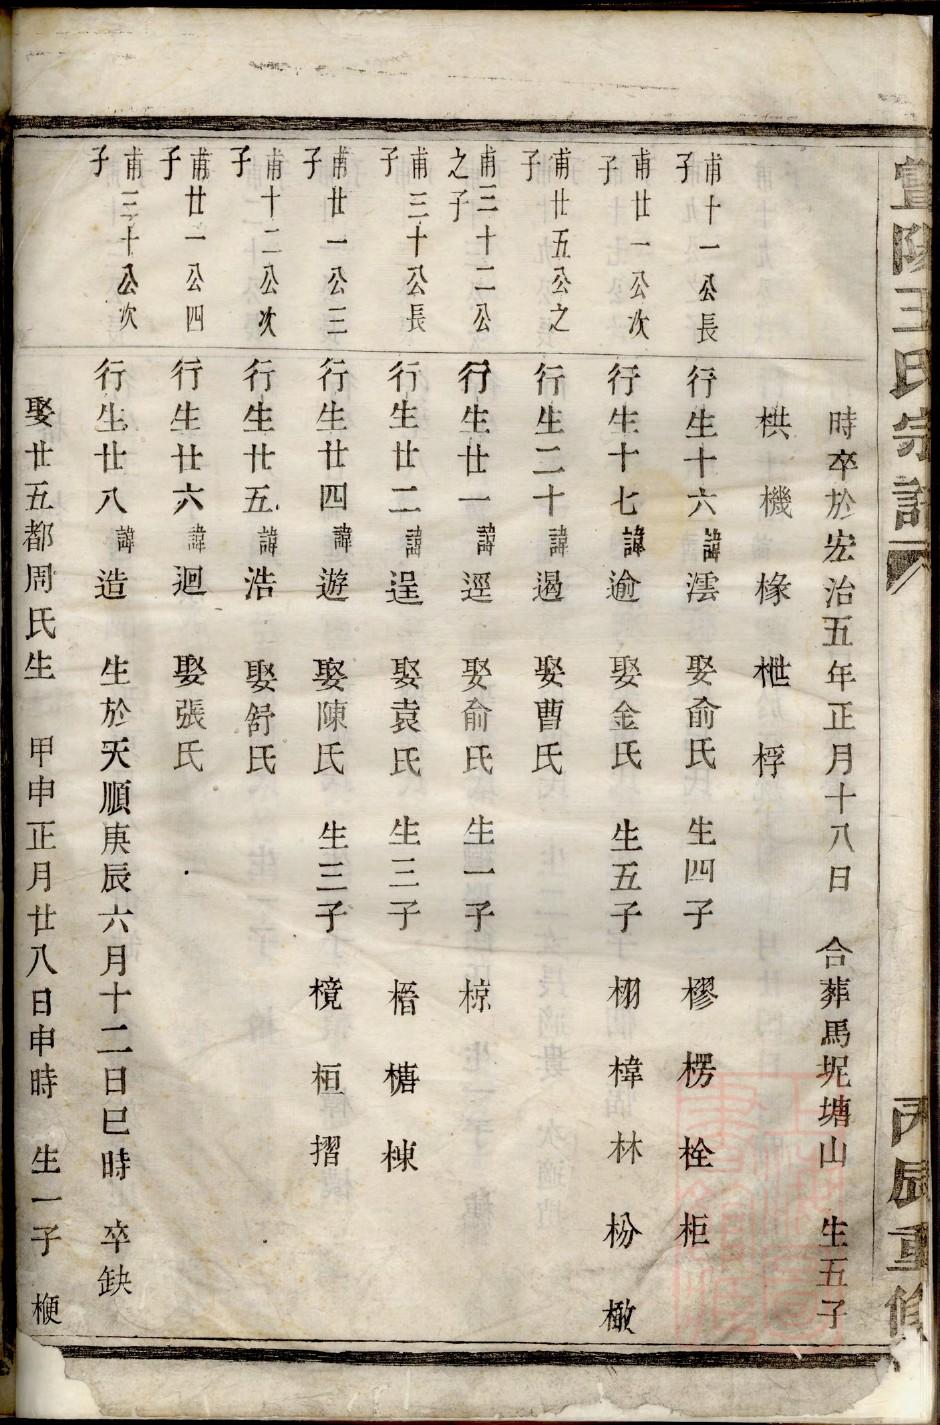 暨陽王氏宗譜
丙辰重修
時卒於宏治五年正月十八日 合葬馬坭塘山 生五子
栱 機 椽 枻 桴
甫十一公長子
行生十六諱澐 娶俞氏 生四子 樛 楞 栓 柜
甫廿一公次子
行生十七諱逾 娶金氏 生五子 栩 樟 林 枌 橄
甫廿五公之子
行生二十諱遏 娶曹氏
甫三十二公之子
行生廿一諱逕 娶俞氏 生一子 椋
甫三十公長子
行生廿二諱逞 娶袁氏 生三子 楿 榶 棟
甫廿一公三子
行生廿四諱遊 娶陳氏 生三子 樈 桓 摺
甫十二公次子
行生廿五諱浩 娶舒氏
甫廿一公四子
行生廿六諱迴 娶張氏
甫三十公次子
行生廿八諱造 生於天順庚辰六月十二日巳時 卒缺
娶廿五都周氏生 甲申正月廿八日申時 生一子 楩